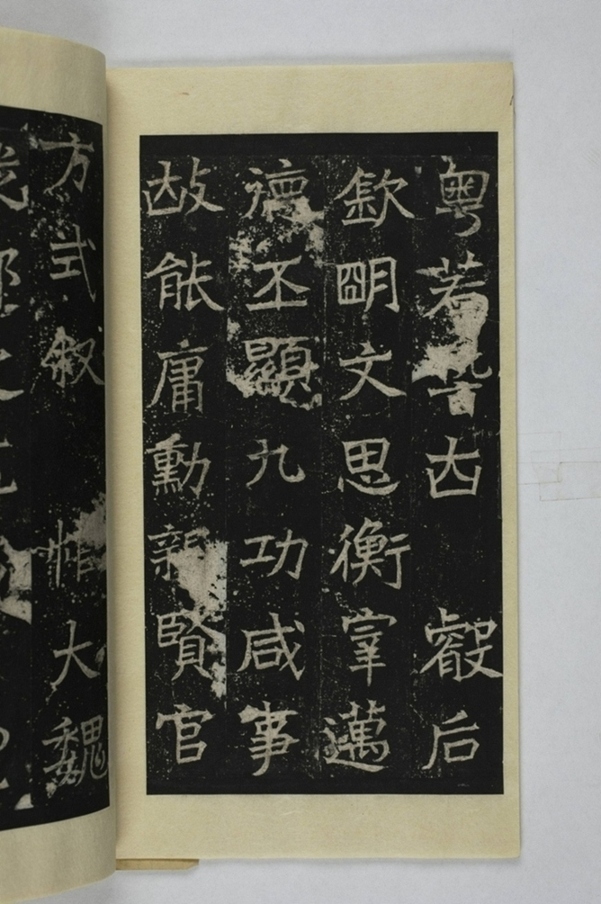 粤若稽古叡后
欽朙文思衡宰邁
德丕顯九功咸事
故能庸勳親賢官
方式叙惟大魏